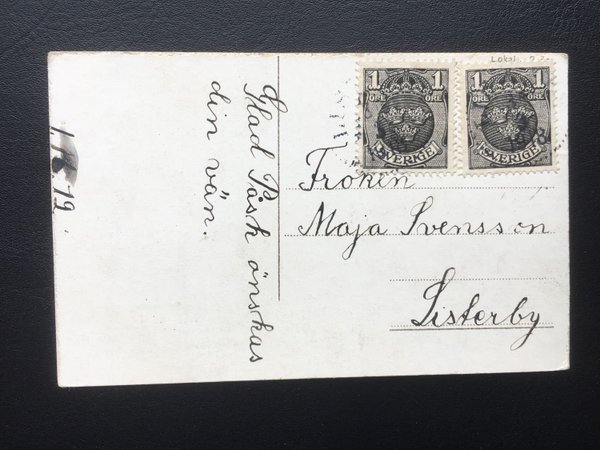 Lokal.
1 1
ÖRE ÖRE
SVERIGE
1 1
ÖRE ÖRE
SVERIGE
Glad Påsk önskas
din vän.
Fröken
Maja Svensson
Sisterby